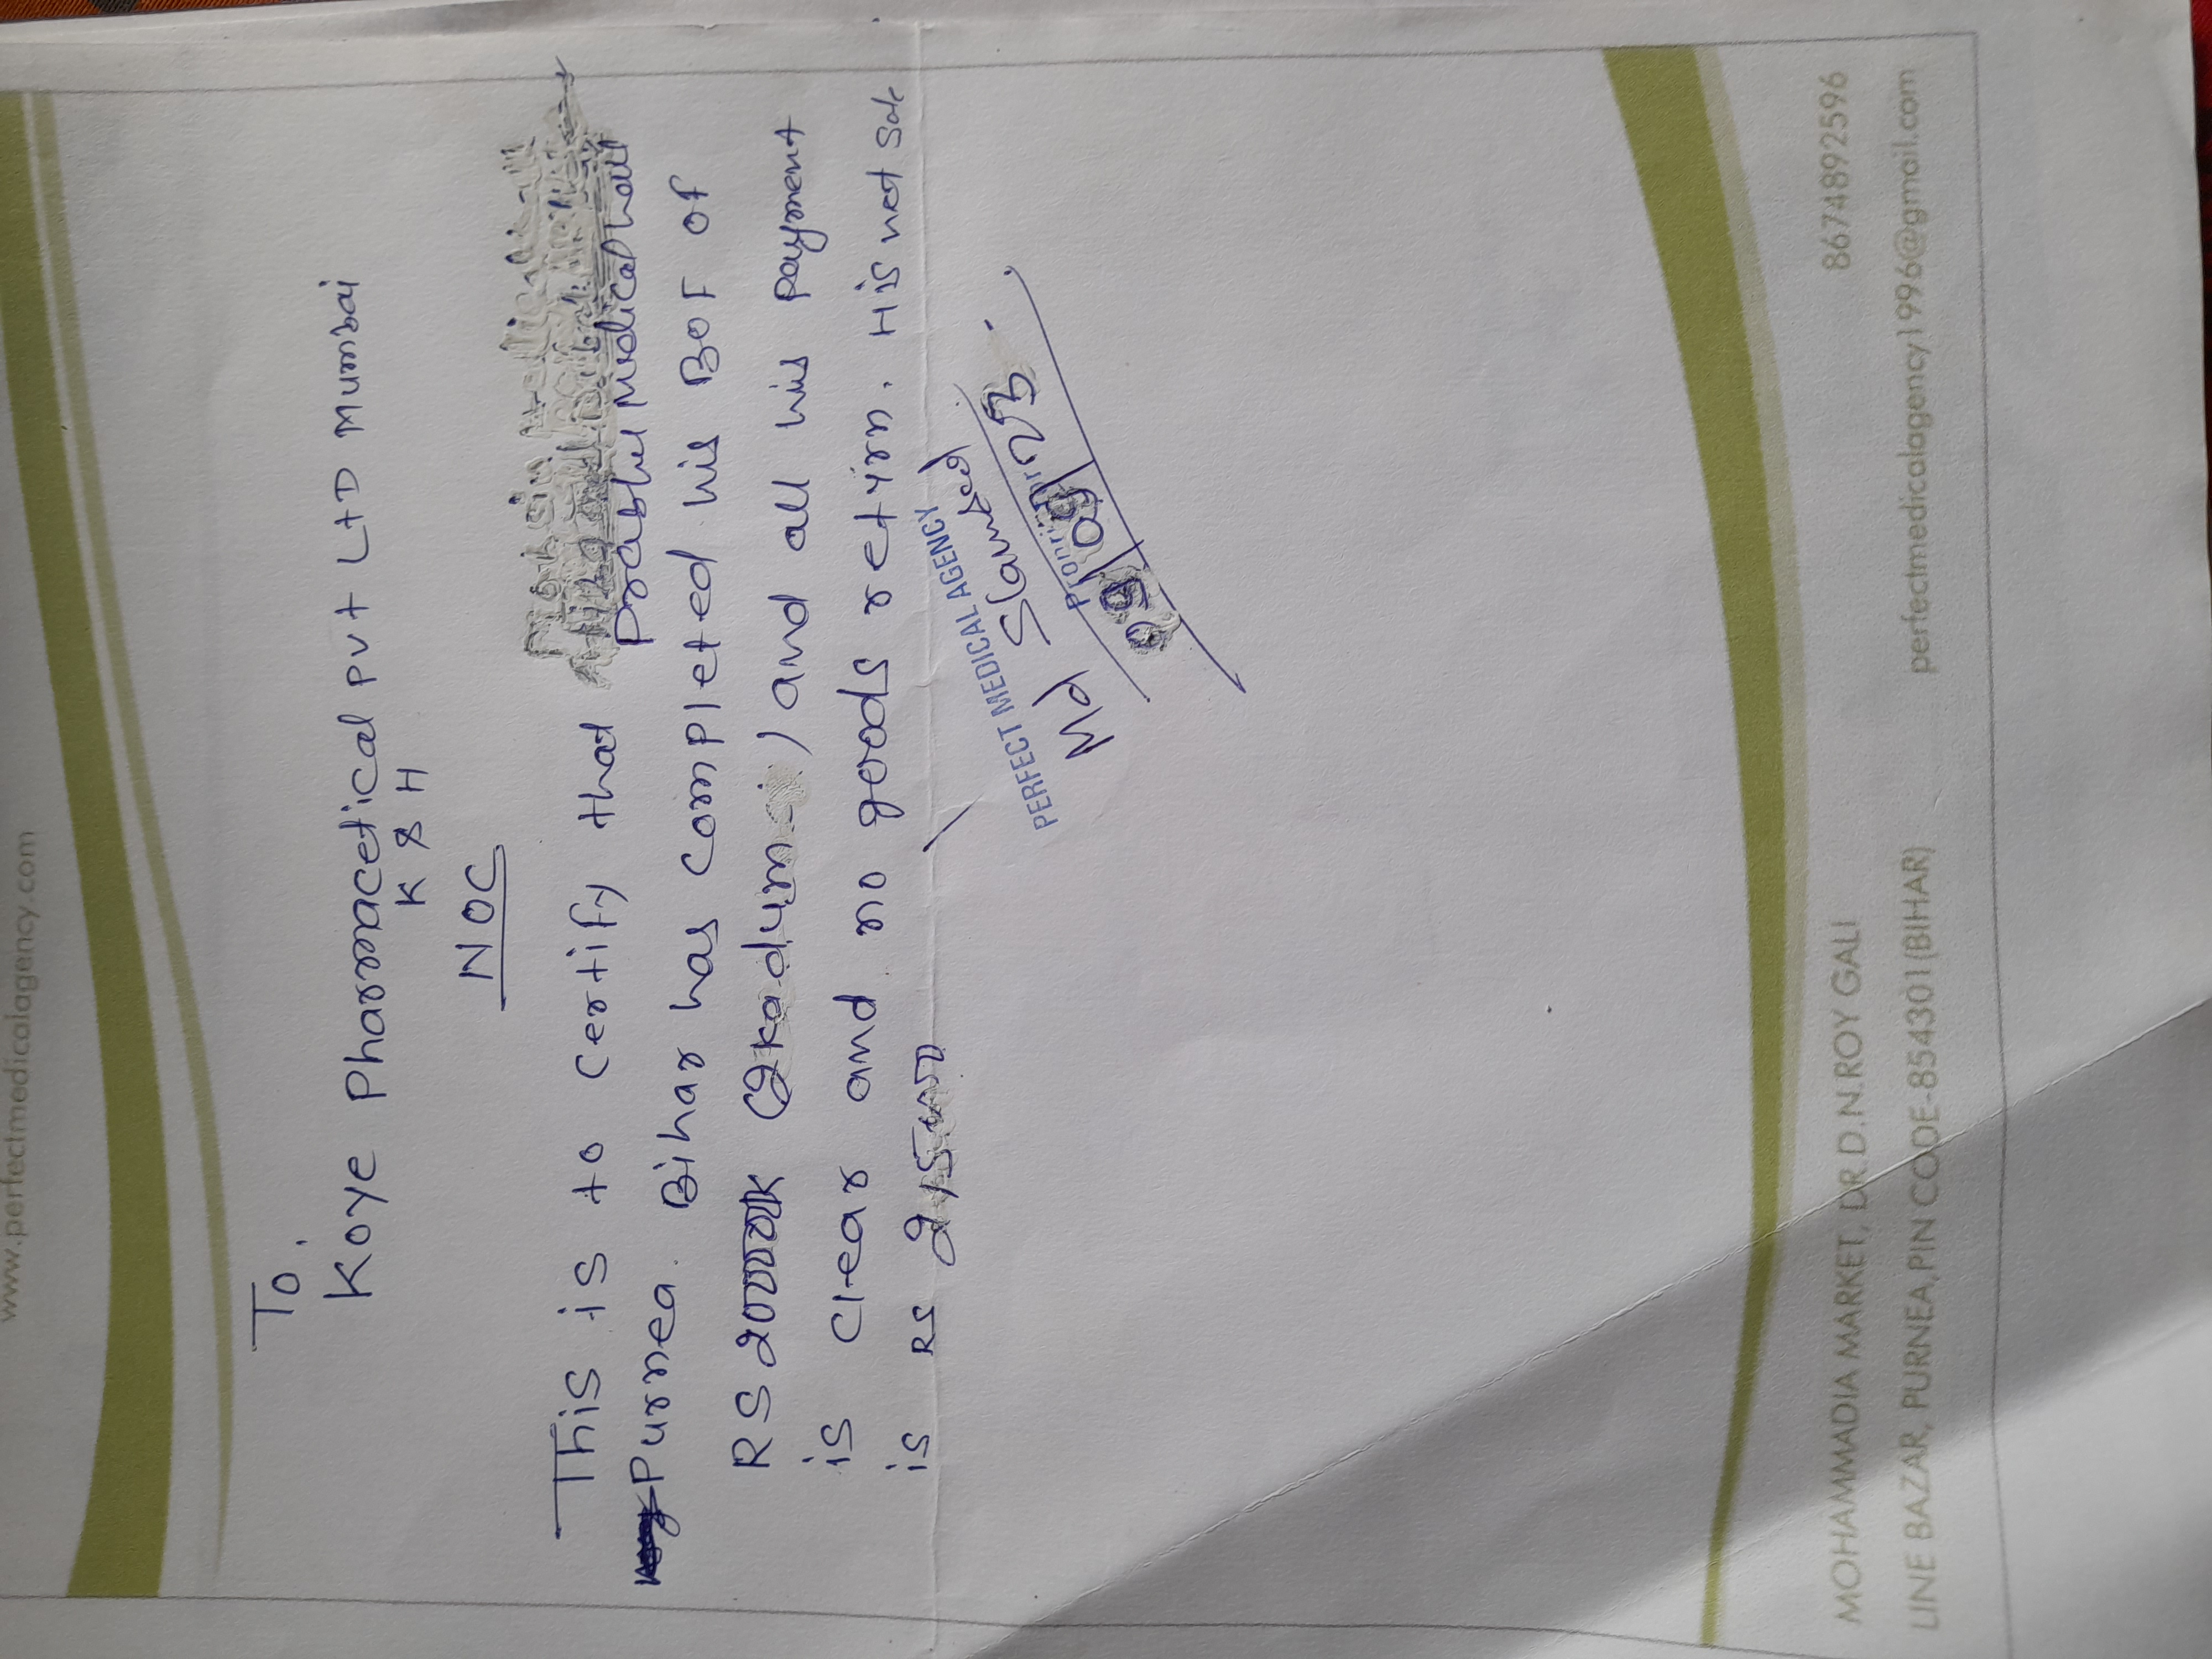 www.perfectmedicalagency.com
To.
Koye Pharmacetical pvt LtD Mumbai
K & H
NOC
This is to certify that Prabhu Medical hall
Purnea. Bihar has completed his BOF of
RS and all his payment
is clear and no goods return. His net sale
is RS
PERFECT MEDICAL AGENCY
Md
MOHAMMADIA MARKET, DR.D.N.ROY GALI 8674892596
LINE BAZAR, PURNEA,PIN CODE-854301(BIHAR) perfectmedicalagency1996@gmail.com